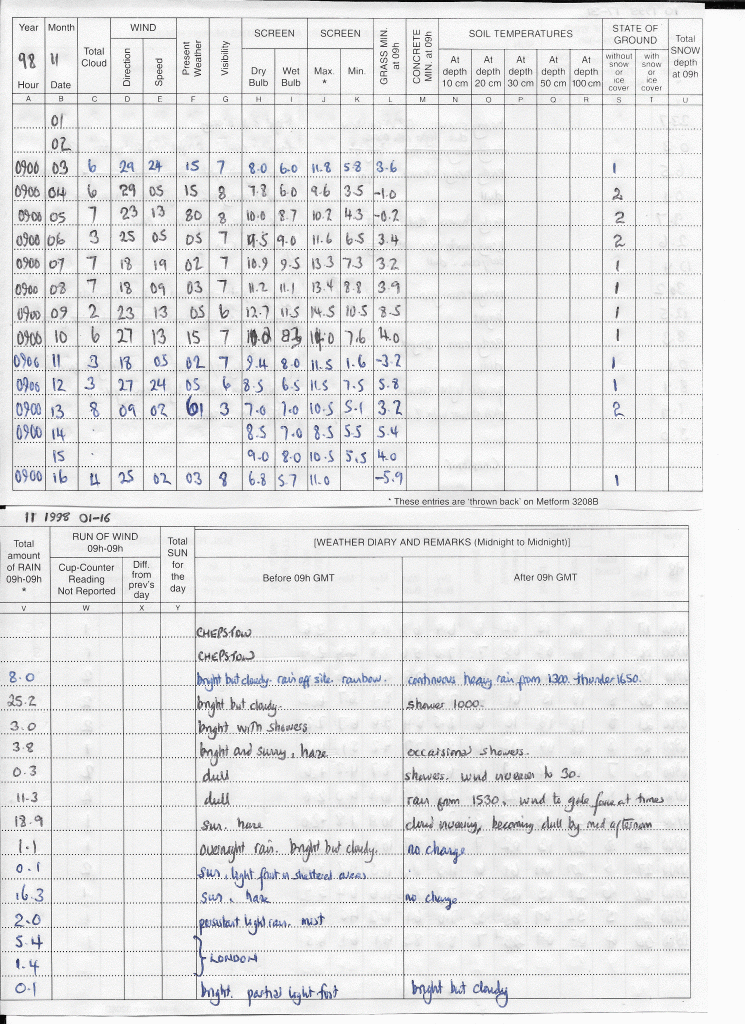 Year Month Total Cloud WIND Present Weather Visibility SCREEN SCREEN GRASS MIN. at 09h CONCRETE MIN. at 09h SOIL TEMPERATURES STATE OF GROUND Total SNOW depth at 09h
98 11 Direction Speed Dry Bulb Wet Bulb Max. * Min. At depth 10 cm At depth 20 cm At depth 30 cm At depth 50 cm At depth 100 cm without snow or ice cover with snow or ice cover
Hour Date
A B C D E F G H I J K L M N O P Q R S T U
01
02
0900 03 6 29 24 15 7 8.0 6.0 11.8 5.8 3.6 1
0900 04 6 29 05 15 8 7.8 6.0 9.6 3.5 -1.0 2
0900 05 7 23 13 80 8 10.0 8.7 10.2 4.3 -0.2 2
0900 06 3 25 05 05 7 9.5 9.0 11.6 6.5 3.4 2
0900 07 7 18 19 02 7 10.9 9.5 13.3 7.3 3.2 1
0900 08 7 18 09 03 7 11.2 11.1 13.4 8.8 3.9 1
0900 09 2 23 13 05 6 12.7 11.5 14.5 10.5 8.5 1
0900 10 6 27 13 15 7 7.6 4.0 1
0900 11 3 18 05 02 7 9.4 8.0 11.5 1.6 -3.2 1
0900 12 3 27 24 05 6 8.5 6.5 11.5 7.5 5.8 1
0900 13 8 09 02 61 3 7.0 7.0 10.5 5.1 3.2 2
0900 14 8.5 7.0 8.5 5.5 5.4
15 9.0 8.0 10.5 5.5 4.0
0900 16 4 25 02 03 8 6.8 5.7 11.0 -5.9 1
* These entries are 'thrown back' on Metform 3208B
11 1998 01-16
Total amount of RAIN 09h-09h * RUN OF WIND 09h-09h Total SUN for the day [WEATHER DIARY AND REMARKS (Midnight to Midnight)]
Cup-Counter Reading Not Reported Diff. from prev's day Before 09h GMT After 09h GMT
V W X Y
CHEPSTOW
CHEPSTOW
8.0 bright but cloudy. rain off site. rainbow. continuous heavy rain from 1300. thunder 1650.
25.2 bright but cloudy. shower 1000.
3.0 bright with showers
3.8 bright and sunny, haze occaisional showers.
0.3 dull showers. wind increases to 30.
11.3 dull rain from 1530. wind to gale force at times
18.9 sun. haze cloud increasing, becoming dull by mid afternoon
1.1 overnight rain. bright but cloudy. no change
0.1 sun. light frost in sheltered areas
16.3 sun. haze no change
2.0 persistent light rain. mist
5.4
1.4 LONDON
0.1 bright. partial light frost bright but cloudy